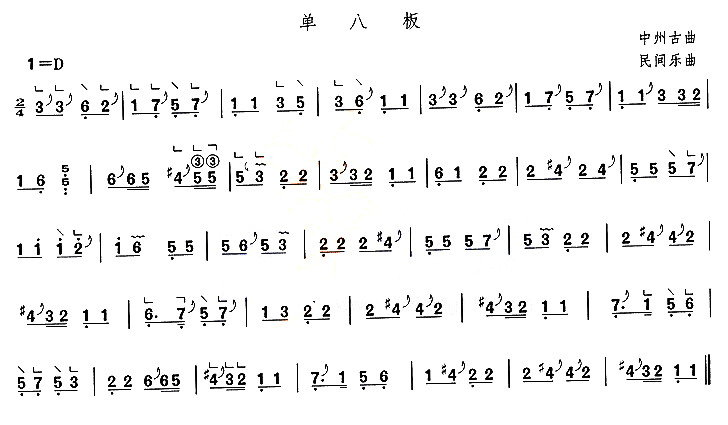 单 八 板
中州古曲
民间乐曲
1=D
2/4 3 3 6 2 | 1 7 5 7 | 1 1 3 5 | 3 6 1 1 | 3 3 6 2 | 1 7 5 7 | 1 1 3 32 |
1 6 5 5 | 6 65 #4 55 ③③ | 5 3 2 2 | 3 32 1 1 | 6 1 2 2 | 2 #4 2 4 | 5 5 5 7 |
1 i i 2 | i 6 5 5 | 5 6 5 3 | 2 2 2 #4 | 5 5 5 7 | 5 3 2 2 | 2 #4 4 2 |
#4 32 1 1 | 6. 7 5 7 | 1 3 2 2 | 2 #4 4 2 | #4 32 1 1 | 7. 1 5 6 |
5 7 5 3 | 2 2 6 65 | #4 32 1 1 | 7. 1 5 6 | 1 #4 2 2 | 2 #4 4 2 | #4 32 1 1 ‖